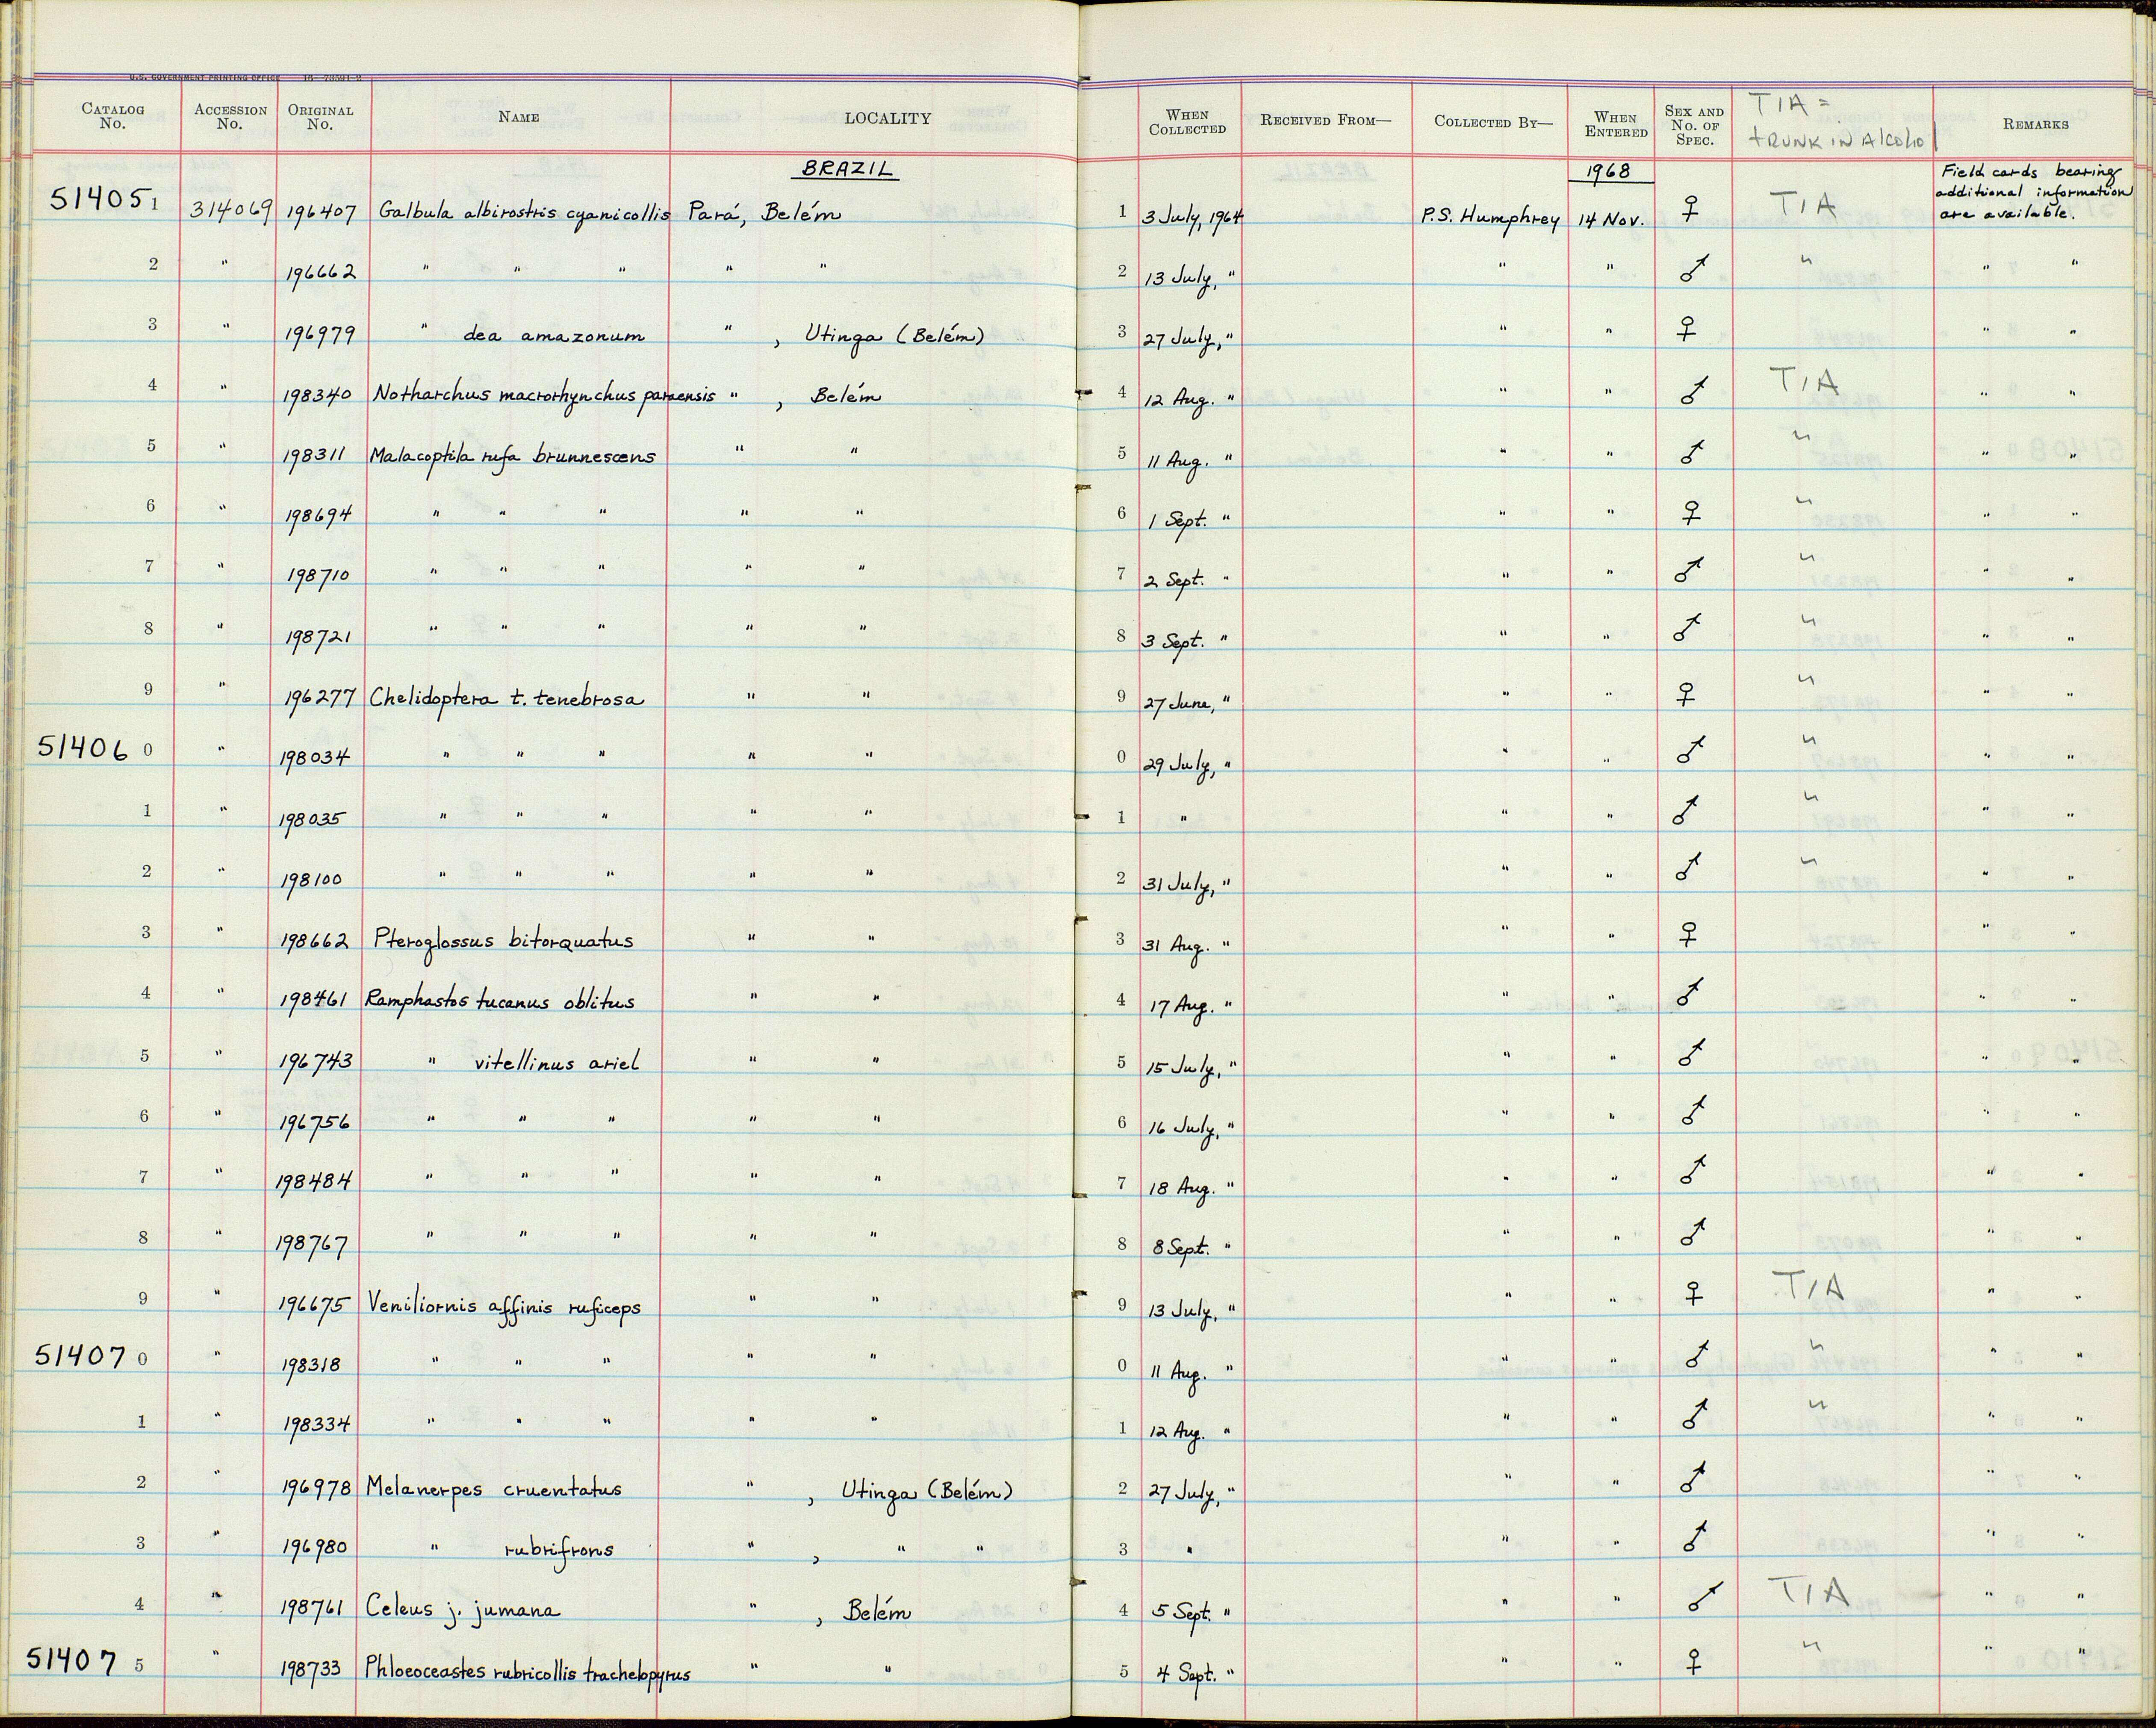 U.S. GOVERNMENT PRINTING OFFICE 16—73591-2
CATALOG No. ACCESSION No. ORIGINAL No. NAME LOCALITY WHEN COLLECTED RECEIVED FROM— COLLECTED BY— WHEN ENTERED SEX AND No. OF SPEC. TIA = TRUNK IN Alcohol REMARKS
BRAZIL 1968
514051 314069 196407 Galbula albirostris cyanicollis Pará, Belém 1 3 July, 1964 P.S. Humphrey 14 Nov. ♀ TIA Field cards bearing additional information are available.
2 " 196662 " " " " " 2 13 July, " " " ♂ " " "
3 " 196979 " dea amazonum " , Utinga (Belém) 3 27 July, " " " ♀ " "
4 " 198340 Notharchus macrorhynchus paraensis " , Belém 4 12 Aug. " " " ♂ TIA " "
5 " 198311 Malacoptila rufa brunnescens " " 5 11 Aug. " " " ♂ " " "
6 " 198694 " " " " " 6 1 Sept. " " " ♀ " " "
7 " 198710 " " " " " 7 2 Sept. " " " ♂ " " "
8 " 198721 " " " " " 8 3 Sept. " " " ♂ " " "
9 " 196277 Chelidoptera t. tenebrosa " " 9 27 June, " " " ♀ " " "
51406 0 " 198034 " " " " " 0 29 July, " " " ♂ " " "
1 " 198035 " " " " " 1 " " " ♂ " " "
2 " 198100 " " " " " 2 31 July, " " " ♂ " " "
3 " 198662 Pteroglossus bitorquatus " " 3 31 Aug. " " " ♀ " "
4 " 198461 Ramphastos tucanus oblitus " " 4 17 Aug. " " " ♂ " "
5 " 196743 " vitellinus ariel " " 5 15 July, " " " ♂ " "
6 " 196756 " " " " " 6 16 July, " " " ♂ " "
7 " 198484 " " " " " 7 18 Aug. " " " ♂ " "
8 " 198767 " " " " " 8 8 Sept. " " " ♂ " "
9 " 196675 Veniliornis affinis ruficeps " " 9 13 July, " " " ♀ TIA " "
51407 0 " 198318 " " " " " 0 11 Aug. " " " ♂ " " "
1 " 198334 " " " " " 1 12 Aug. " " " ♂ " " "
2 " 196978 Melanerpes cruentatus " , Utinga (Belém) 2 27 July, " " " ♂ " "
3 " 196980 " rubrifrons " , " " 3 " " " ♂ " "
4 " 198761 Celeus j. jumana " , Belém 4 5 Sept. " " " ♂ TIA " "
51407 5 " 198733 Phloeoceastes rubricollis trachelopyrus " " 5 4 Sept. " " " ♀ " " "